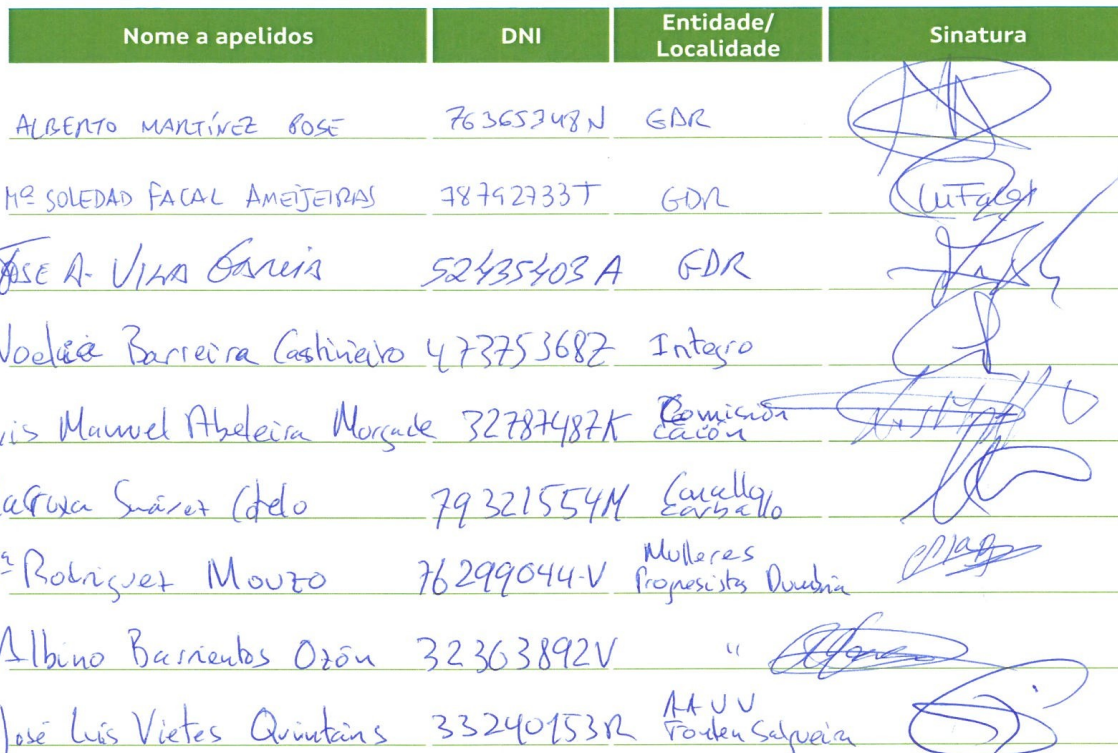 Nome a apelidos DNI Entidade/ Localidade Sinatura
ALBERTO MARTÍNEZ POSE 76365748N GDR
Mª SOLEDAD FACAL AMEIJEIRAS 78792733T GDR
JOSE A. VILA García 52435403A GDR
Noelia Barreira Castiñeiro 47375368Z Integro
is Manuel Abeleira Morgade 32787487K Comisión
Suárez Cotelo 79321554M Concello Carballo
ª Rodriguez Mouzo 76299044-V Mulleres Progresistas Dumbría
Albino Barrientos Ozón 32363892V "
José Luis Vietes Quintáns 33240153R AAVV